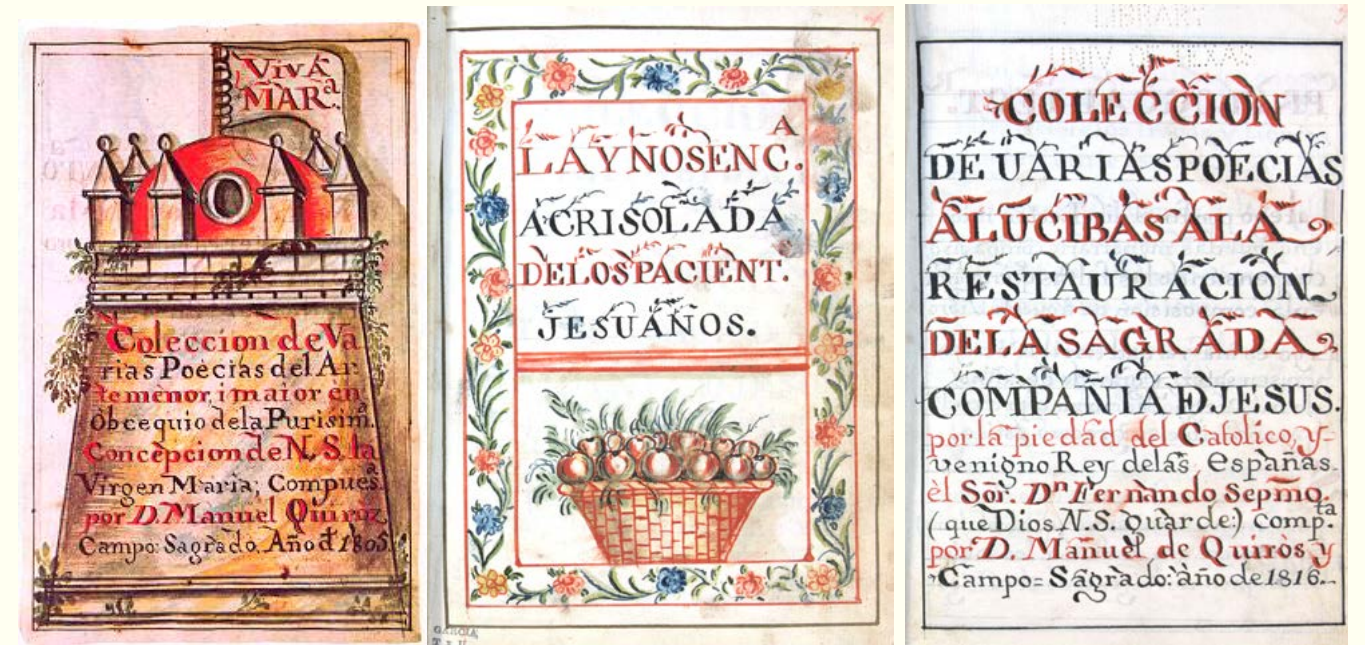 VIVA
MARᵃ.
Coleccion de Va
rias Poècias del Ar
te menor, i maior en
Obcequio dela Purisim.ᵃ
Concèpcion de N. S. la
Virgen Maria; Compues.ᵃ
por D. Manuel Quiroz
Campo: Sagrado. Año đ 1805.
LA YNOSENC.ᴬ
ACRISOLADA
DE LOS PACIENT.
JESUANOS.
GARCIA
LIBRARY
UNIV OF TEXAS
COLECCION
DE UARIAS POECIAS
ALUCIBAS A LA
RESTAURACION
DE LA SAGRADA
COMPAÑIA Đ JESUS.
por la piedad del Catolico, y-
venigno Rey delas españas
èl Sor. Dⁿ Fernando Sepmo.
(que Dios N. S. guarde:) comp.ᵗᵃ
por D. Manuel de Quiròs y
Campo= Sagrado: año de 1816.